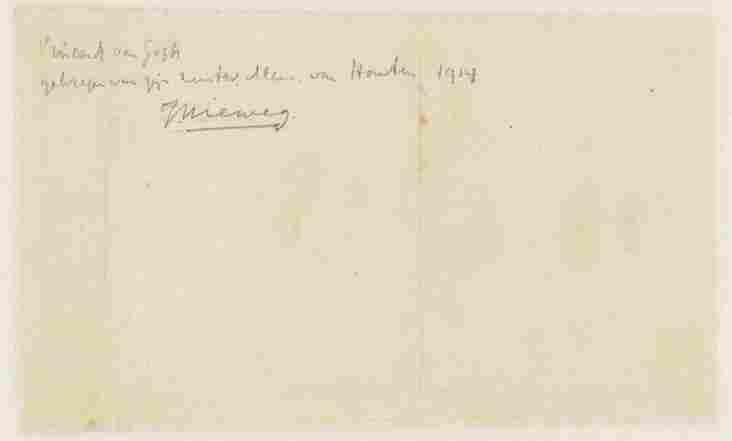 Vincent van Gogh
gekregen van zijn zuster Mevr. van Houten 1914
JNieweg.